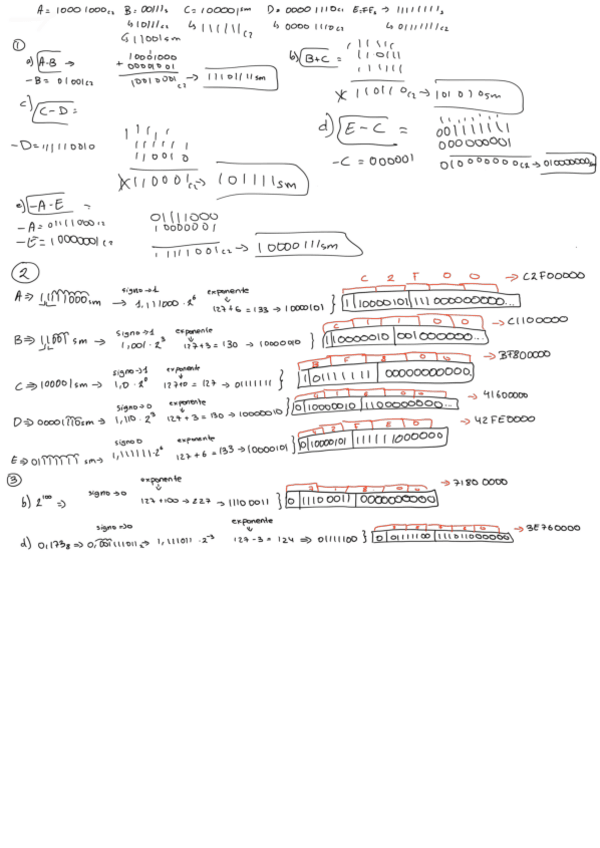 A = 1000 1000c2 B = 00111s C = 100001sm D = 0000 1110c1 E = FF2 → 11111111s
↳ 10111c2 ↳ 111111c2 ↳ 0000 1110c2 ↳ 01111111c2
↳ 111001sm
①
a) A-B →
10001000
+ 00001001
10010001c2 → 11101111sm
-B = 01001c2
b) B+C =
110111
111111
X 110110c2 → 101010sm
c) C-D =
-D = 11110010
111111
110010
X 110001c2 → 101111sm
d) E-C =
001111111
000000001
010000000c2 → 010000000sm
-C = 000001
e) -A-E =
-A = 01111000c2
-E = 10000001c2
01111000
10000001
11111001c2 → 10000111sm
②
A ⇒ 1111000sm signo → 1 → 1,111000 · 2^6 exponente 127+6 = 133 → 10000101 } 1 10000101 111000000000... C 2 F 0 0 → C2F00000
B ⇒ 11001 sm → signo → 1 1,001 · 2^3 exponente → 127+3 = 130 → 10000010 } 1 10000010 001000000... C 1 1 0 0 → C1100000
C ⇒ 100001 sm → signo → 1 1,0 · 2^0 exponente 127+0 = 127 → 01111111 } 1 01111111 0000000000. B F 8 0 0 → BF800000
D ⇒ 00001110sm → signo → 0 1,110 · 2^3 exponente → 127+3 = 130 → 10000010 } 0 10000010 1100000000... → 41600000
E ⇒ 01111111 sm → signo 0 1,111111 · 2^6 exponente 127+6 = 133 → 10000101 } 0 10000101 1111110000000 4 2 F E 0 → 42FE0000
③
b) 2^100 ⇒ signo → 0 exponente 127+100 → 227 → 11100011 } 0 11100011 0000000000 → 71800000
d) 0,1738 ⇒ 0,0011110112 → signo → 0 1,111011 · 2^-3 exponente 127-3 = 124 ⇒ 01111100 } 0 01111100 111011000000 → 3E760000